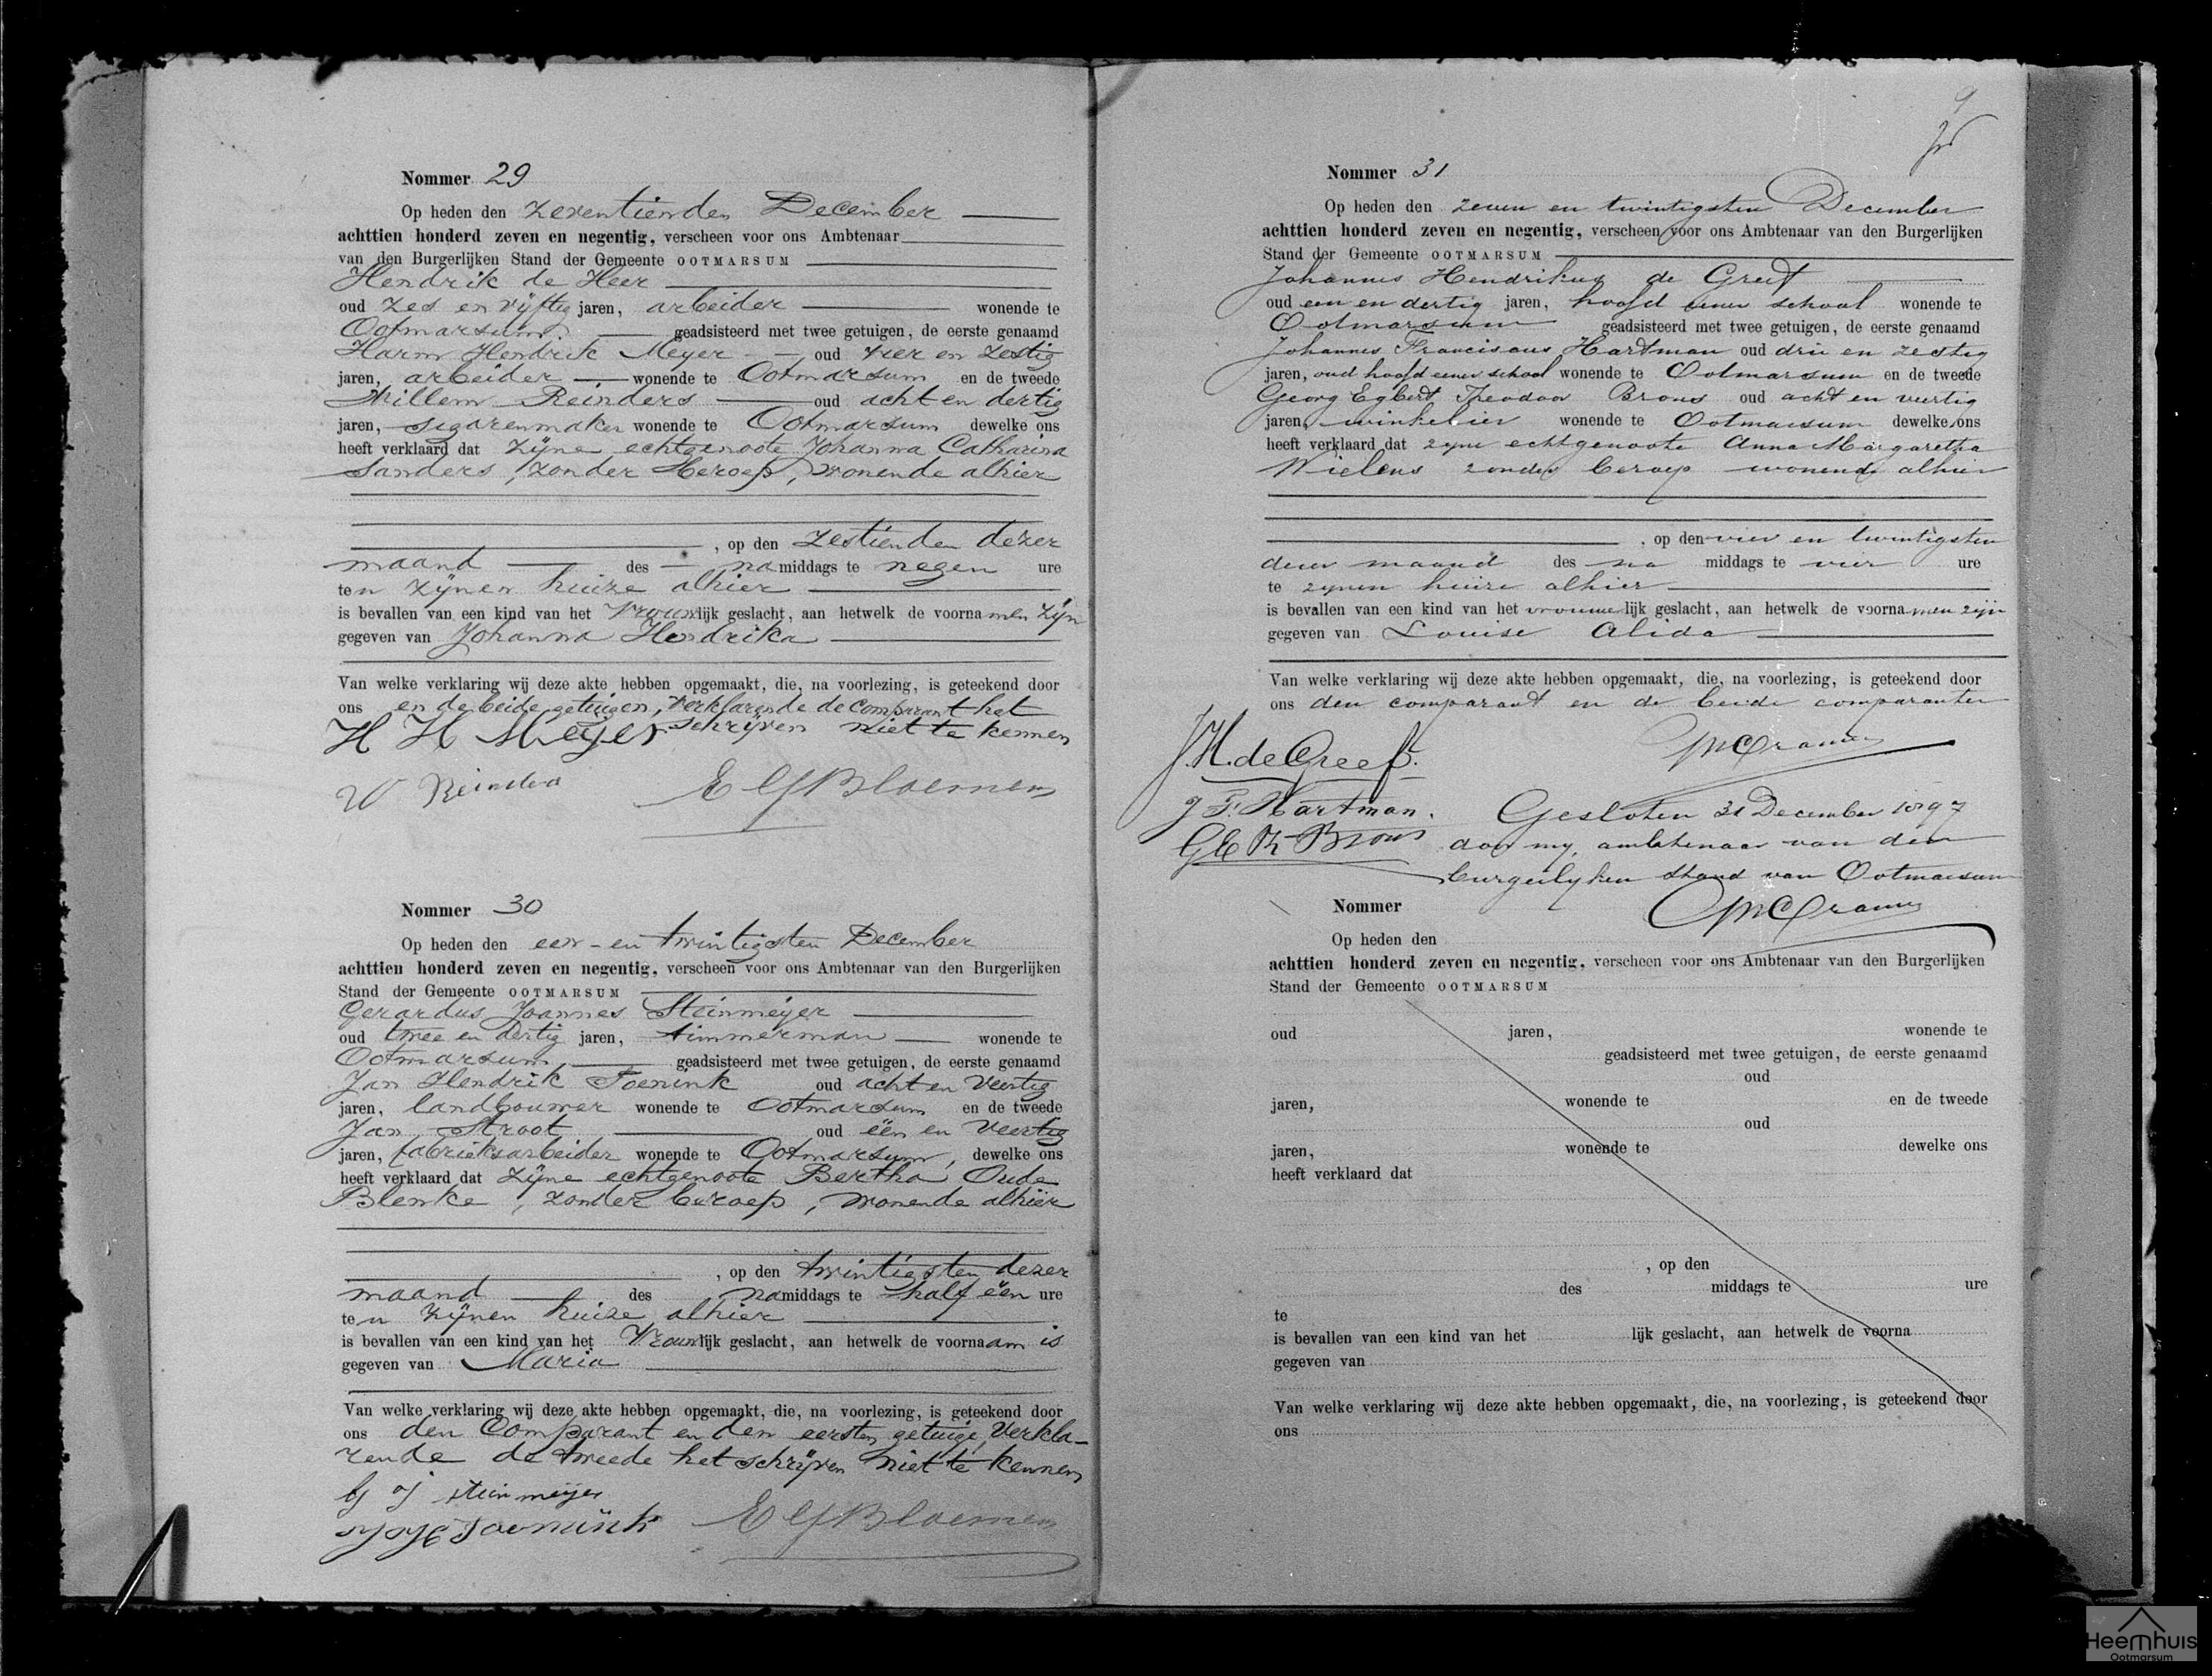 Nommer 29
Op heden den zeventienden December
achttien honderd zeven en negentig, verscheen voor ons Ambtenaar
van den Burgerlijken Stand der Gemeente OOTMARSUM
Hendrik de Heer
oud zes en vijftig jaren, arbeider wonende te
Ootmarsum, geadsisteerd met twee getuigen, de eerste genaamd
Harm Hendrik Meyer oud vier en zestig
jaren, arbeider wonende te Ootmarsum en de tweede
Willem Reinders oud acht en dertig
jaren, sigarenmaker wonende te Ootmarsum dewelke ons
heeft verklaard dat zijne echtgenoote Johanna Catharina
Sanders, zonder beroep, wonende alhier
, op den zestienden dezer
maand des namiddags te negen ure
ten zijnen huize alhier
is bevallen van een kind van het vrouwlijk geslacht, aan hetwelk de voornamen zijn
gegeven van Johanna Hendrika
Van welke verklaring wij deze akte hebben opgemaakt, die, na voorlezing, is geteekend door
ons en de beide getuigen, verklarende de comparant het
schrijven niet te kennen
H H Meijer
W Reinders
Nommer 30
Op heden den een-en twintigsten December
achttien honderd zeven en negentig, verscheen voor ons Ambtenaar van den Burgerlijken
Stand der Gemeente OOTMARSUM
Gerardus Joannes Steinmeijer
oud twee en dertig jaren, timmerman wonende te
Ootmarsum, geadsisteerd met twee getuigen, de eerste genaamd
Jan Hendrik Soenink oud acht en veertig
jaren, landbouwer wonende te Ootmarsum en de tweede
Jan Stroot oud één en veertig
jaren, fabrieksarbeider wonende te Ootmarsum, dewelke ons
heeft verklaard dat zijne echtgenoote Bertha Oude
Blenke, zonder beroep, wonende alhier
, op den twintigsten dezer
maand des namiddags te half één ure
ten zijnen huize alhier
is bevallen van een kind van het vrouwlijk geslacht, aan hetwelk de voornaam is
gegeven van Maria
Van welke verklaring wij deze akte hebben opgemaakt, die, na voorlezing, is geteekend door
ons den Comparant en den eersten getuige, verkla-
rende de tweede het schrijven niet te kennen
G J Steinmeijer
Nommer 31
Op heden den zeven en twintigsten December
achttien honderd zeven en negentig, verscheen voor ons Ambtenaar van den Burgerlijken
Stand der Gemeente OOTMARSUM
Johannes Hendrikus de Greef
oud een en dertig jaren, hoofd eener school wonende te
Ootmarsum geadsisteerd met twee getuigen, de eerste genaamd
Johannes Franciscus Hartman oud drie en zestig
jaren, oud hoofd eener school wonende te Ootmarsum en de tweede
Georg Egbert Theodoor Brons oud acht en veertig
jaren, winkelier wonende te Ootmarsum dewelke ons
heeft verklaard dat zyne echtgenoote Anna Margaretha
Wielens zonder beroep wonende alhier
, op den vier en twintigsten
dezer maand des na middags te vier ure
te zynen huize alhier
is bevallen van een kind van het vrouwelijk geslacht, aan hetwelk de voornamen zijn
gegeven van Louise Alida
Van welke verklaring wij deze akte hebben opgemaakt, die, na voorlezing, is geteekend door
ons den comparant en de beide comparanten
J.H. de Greef.
J F. Hartman.
G E Th Brons
Gesloten 31 December 1897
door my, ambtenaar van den
burgerlyken stand van Ootmarsum
Nommer
Op heden den
achttien honderd zeven en negentig, verscheen voor ons Ambtenaar van den Burgerlijken
Stand der Gemeente OOTMARSUM
oud jaren, wonende te
geadsisteerd met twee getuigen, de eerste genaamd
oud
jaren, wonende te en de tweede
oud
jaren, wonende te dewelke ons
heeft verklaard dat
, op den
des middags te ure
te
is bevallen van een kind van het lijk geslacht, aan hetwelk de voorna
gegeven van
Van welke verklaring wij deze akte hebben opgemaakt, die, na voorlezing, is geteekend door
ons
Heemhuis
Ootmarsum